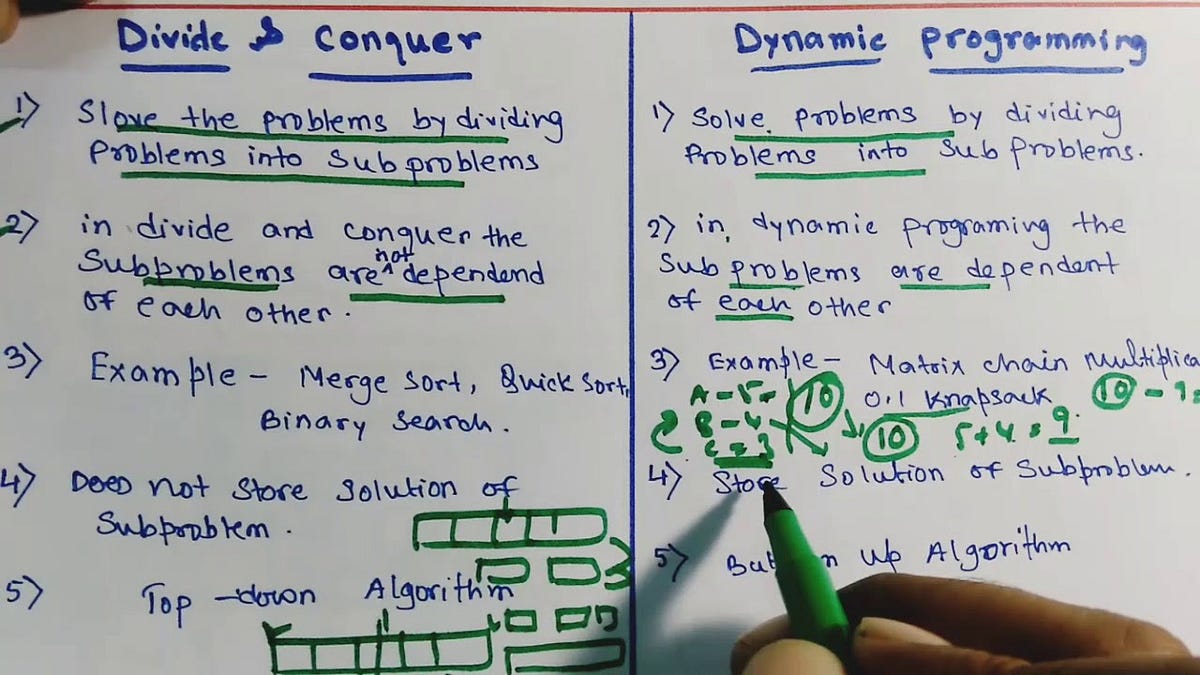 Divide & Conquer
1) Slove the problems by dividing
Problems into Subproblems
2) in divide and conquer the
not
Subproblems are ^ dependend
of each other.
3) Example - Merge Sort, Quick Sort,
Binary Search.
4) Does not Store Solution of
Subproblem.
5) Top-down Algorithm
Dynamic Programming
1) Solve. Problems by dividing
Problems into Sub Problems.
2) in, dynamic Programing the
Sub problems are dependent
of each other
3) Example - Matrix chain Multiplica
A - 5
10
0.1 Knapsack
10
B - 4
10
5 + 4 = 9
C = 3
4) Store Solution of Subproblem.
5) up Algorithm